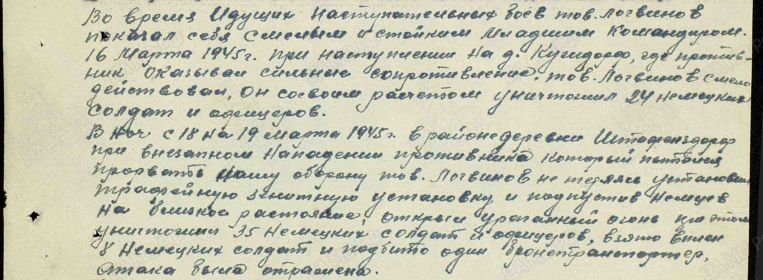 Во время идущих наступательных боев тов. Логвинов
показал себя смелым и стойким младшим командиром.
16 марта 1945 г. при наступлении на д. Кугидорф, где против-
ник оказывал сильные сопротивление, тов. Логвинов смело
действовал, он со своим расчетом уничтожил 24 немецких
солдат и офицеров.
В ноч с 18 на 19 марта 1945 г. в районе деревни Штафенздорф
при внезапном нападении противника который пытался
прорвать нашу оборону тов. Логвинов не теряясь установил
трофейную зенитную установку и подпустив немцев
на близкое растояние, открыл ураганный огонь при этом
уничтожил 35 немецких солдат и офицеров, взято в плен
8 немецких солдат и подбито один бронетранспортер,
атака была отражена.